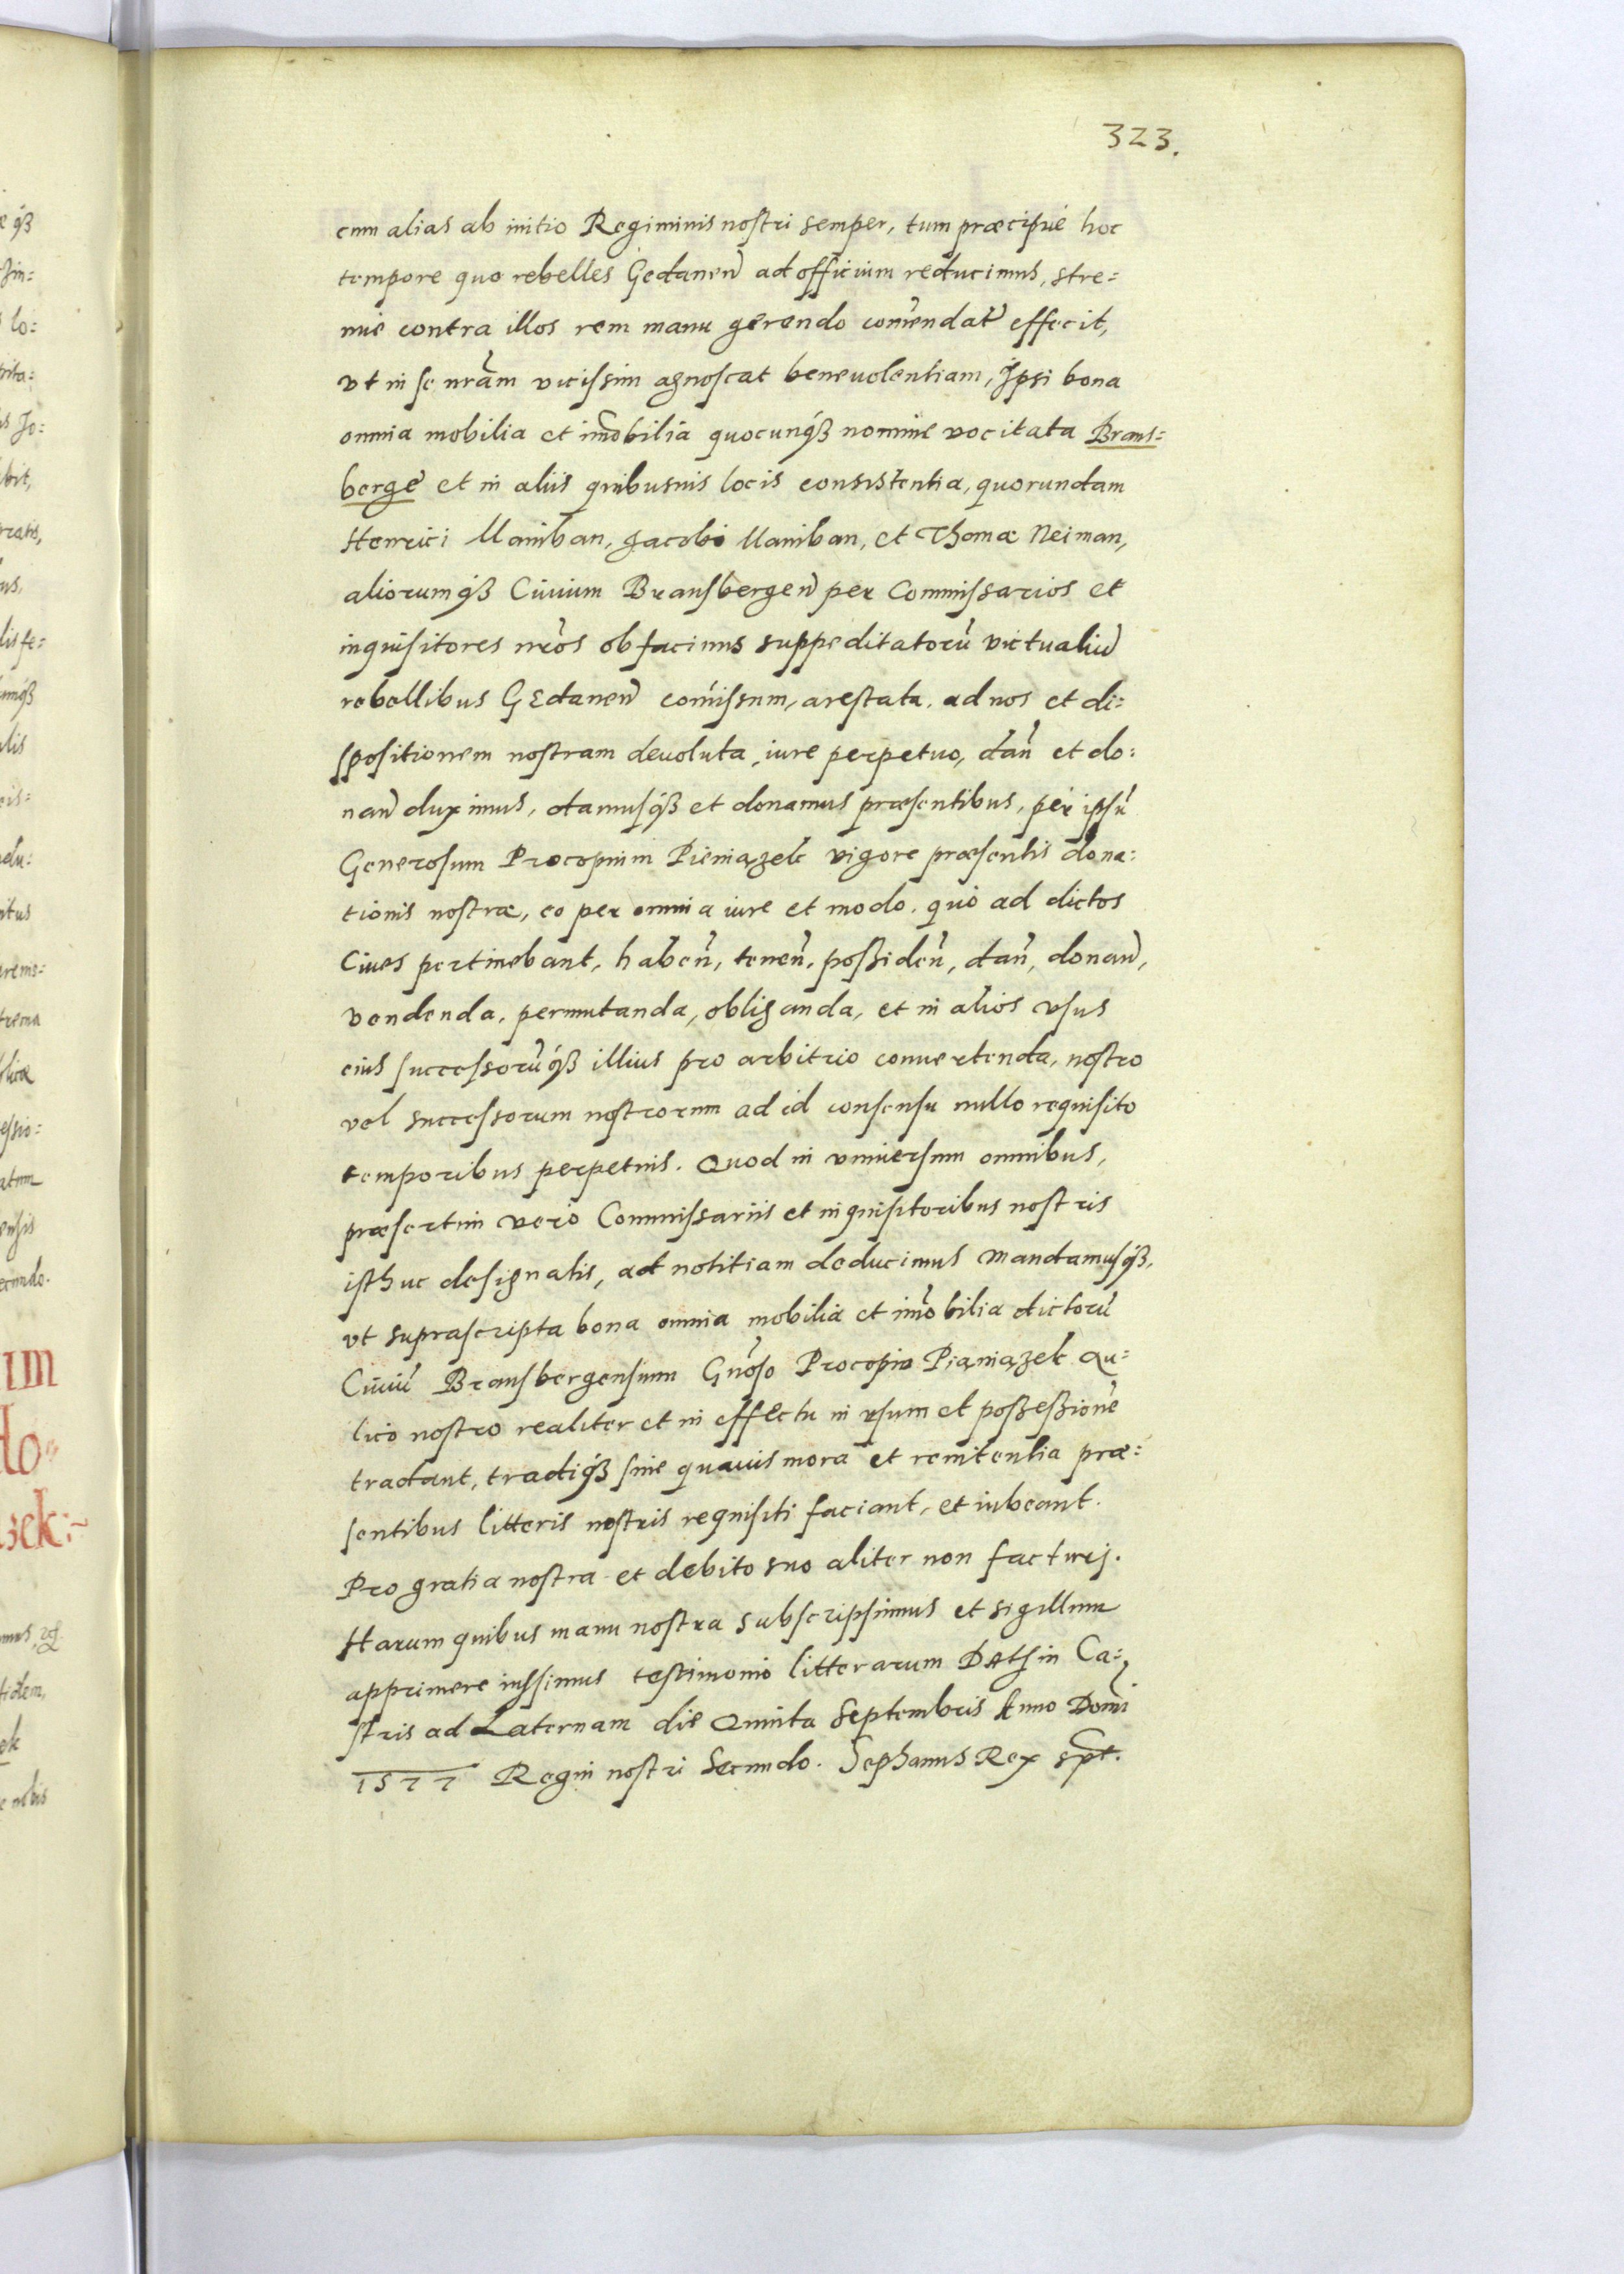 323.
cum alias ab initio Regiminis nostri semper, tum præcipuè hoc
tempore quo rebelles Gedaneñ ad officium reducimus, stre=
nue contra illos rem manu gerendo com̃endatũ effecit,
vt in se nrãm vicissim agnoscat beneuolentiam, Ipsi bona
omnia mobilia et im̃obilia quocunqꝫ nomine vocitata Brans=
bergę et in aliis quibusuis locis consistentia, quorundam
Henrici Maniban, Jacobi Maniban, et Thomæ Neiman,
aliorumqꝫ Ciuium Bransbergeñ per Commissarios et
inquisitores nrõs ob facinus suppeditatorũ victualiũ
rebellibus Gedaneñ com̃issum, arestata, ad nos et di=
spositionem nostram deuoluta, iure perpetuo, dañ et do=
nañ duximus, damusqꝫ et donamus præsentibus, per ipsũ
Generosum Procopium Pieniązek vigore præsentis dona=
tionis nostræ, eo per omnia iure et modo, quo ad dictos
Ciues pertinebant, habeñ, teneñ, possideñ, dañ, donañ,
vendenda, permutanda, obliganda, et in alios vsus
eius successorũqꝫ illius pro arbitrio conuertenda, nostro
vel successorum nostrorum ad id consensu nullo requisito
temporibus perpetuis. Quod in vniuersum omnibus,
præsertim vero Commissariis et inquisitoribus nostris
isthuc designatis, ad notitiam deducimus mandamusqꝫ,
vt suprascripta bona omnia mobilia et im̃obilia dictorũ
Ciuiũ Bransbergensium Gnõso Procopio Pianiązek Au=
lico nostro realiter et in effectu in vsum et possessionẽ
tradant, tradiqꝫ sine quauis mora et renitentia præ=
sentibus litteris nostris requisiti faciant, et iubeant.
Pro gratia nostra et debito suo aliter non facturj.
Harum quibus manu nostra subscripsimus et sigillum
apprimere iussimus testimonio litterarum Dat in Ca=
stris ad Laternam die Quinta Septembris Anno Domi
1577 Regni nostri Secundo. Stephanus Rex spt.